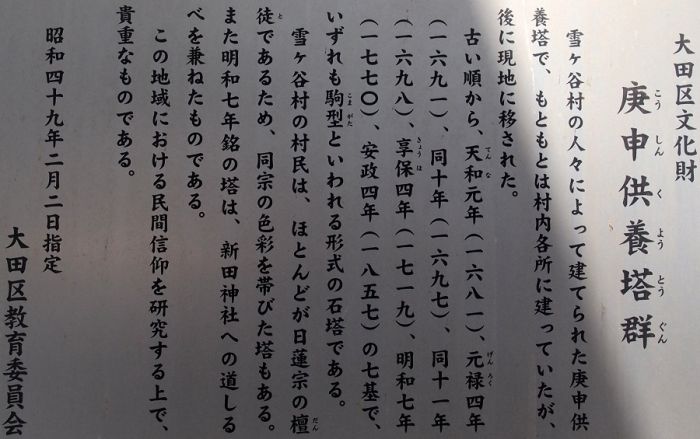 大田区文化財
庚申供養塔群
こう しん く よう とう ぐん
雪ヶ谷村の人々によって建てられた庚申供
養塔で、もともとは村内各所に建っていたが、
後に現地に移された。
古い順から、天和元年(一六八一)、元禄四年
てん な
げん ろく
(一六九一)、同十年(一六九七)、同十一年
(一六九八)、享保四年(一七一九)、明和七年
きょう ほ
(一七七〇)、安政四年(一八五七)の七基で、
いずれも駒型といわれる形式の石塔である。
こま がた
雪ヶ谷村の村民は、ほとんどが日蓮宗の檀
だん
徒であるため、同宗の色彩を帯びた塔もある。
と
また明和七年銘の塔は、新田神社への道しる
べを兼ねたものである。
この地域における民間信仰を研究する上で、
貴重なものである。
昭和四十九年二月二日指定
大田区教育委員会